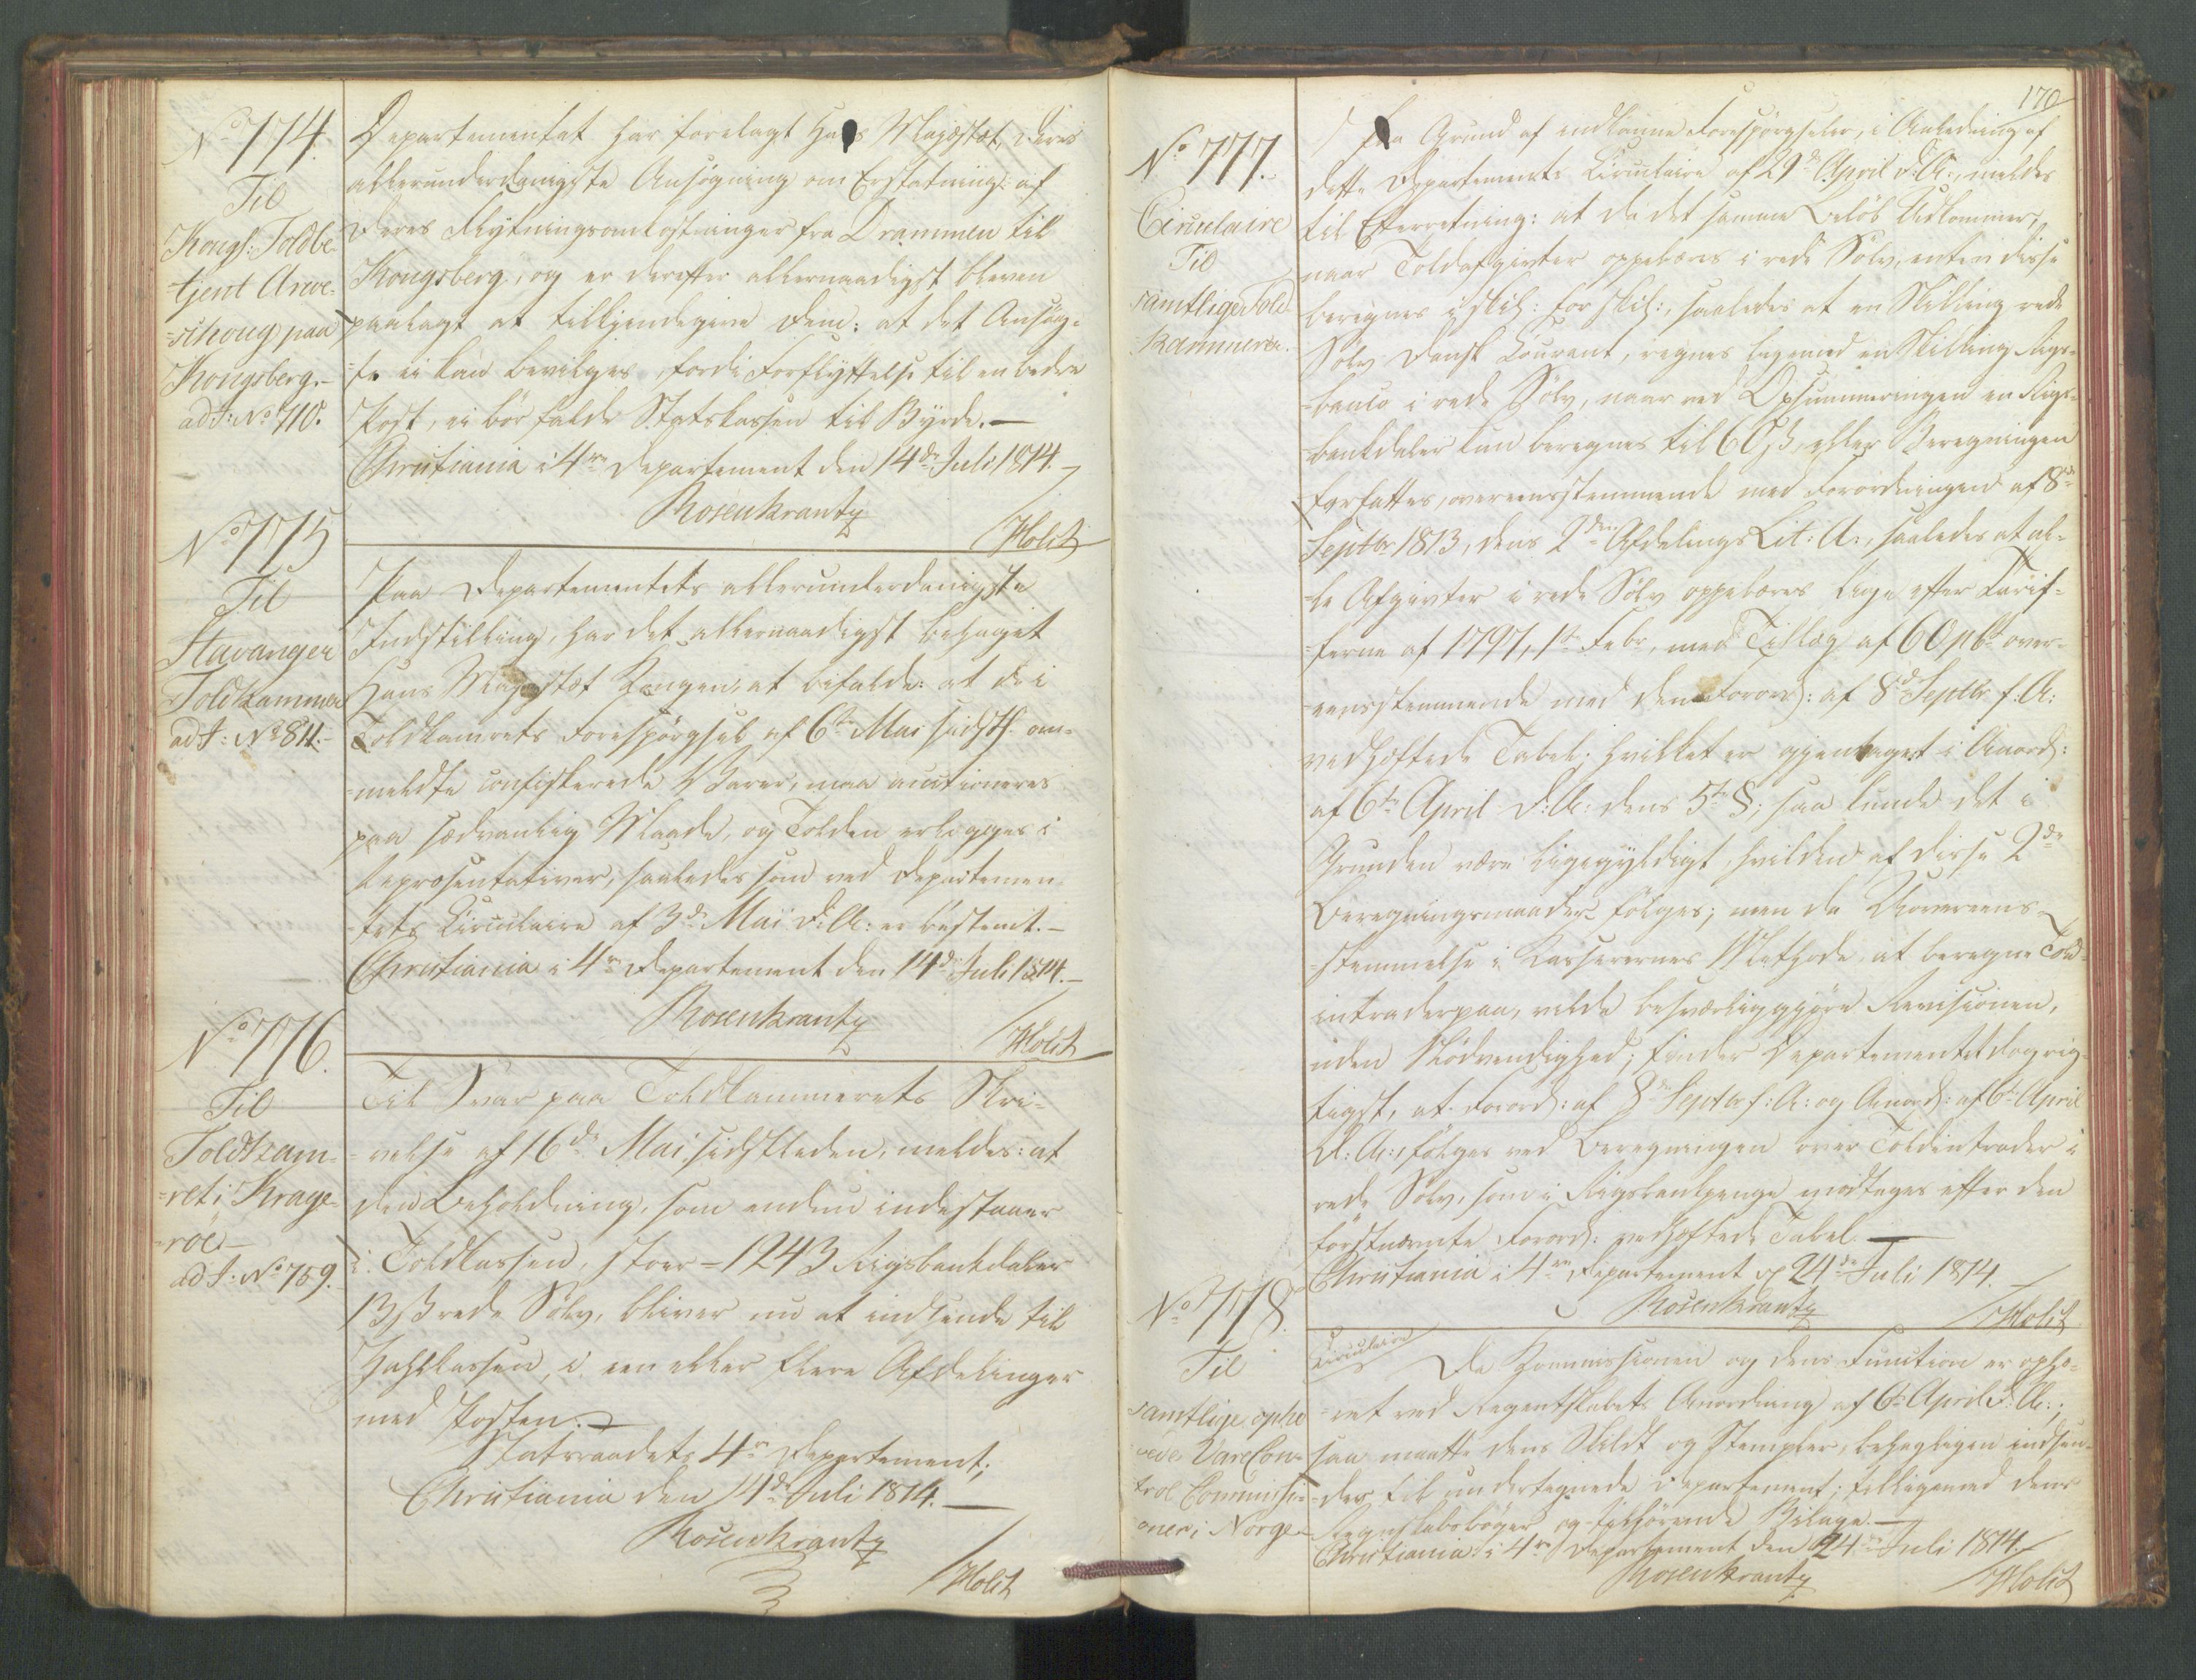 No 774.
Til
Kongl: Toldbe-
tjent Arve-
-schoug paa
Kongsberg.-
ad J: No 710.
Departementet har forelagt Hans Majestæt, Deres
allerunderdanigste Ansögning om Erstatning af
Deres Flytningsomkostninger fra Drammen til
Kongsberg, og er derefter allernaadigst bleven
paalagt at tilkjendegive Dem: at det Ansög-
-te ei kan bevilges, fordi Forflyttelse til en bedre
Post, ei bör falde Statskassen til Byrde.—
Christiania i 4de Departement den 14de Juli 1814.—
Rosenkrantz
/Holst
No 775
Til
Stavanger
Toldkammer
ad J: No 811.-
Paa Departementets allerunderdanigste
Indstilling, har det allernaadigst behaget
Hans Majestæt Kongen, at bifalde: at de i
Toldkamrets Forespörgsel af 6te Mai sidstl. om-
-meldte confiskerede Varer, maa auctioneres
paa sædvanlig Maade, og Tolden erlægges i
Repræsentativer, saaledes som ved Departemen
-tets Circulaire af 3de Mai d: A: er bestemt.—
Christiania i 4de Departement den 14de Juli 1814.—
Rosenkrantz
/Holst
No 776.
Til
Toldkam-
-ret i Krage-
-röe-
ad J: No 759.
Til Svar paa Toldkammerets Skri-
-velse af 16de Mai sidstleden, meldes: at
den Beholdning, som endnu indestaaer
i Toldkassen, stoer - 1243 Rigsbankdaler
13 ß rede Sölv, bliver nu at indsende til
Zahlkassen, i een eller flere Afdelinger
med Posten.—
Statsraadets 4de Departement;
Christiania den 14de Juli 1814.—
Rosenkrantz
/Holst
170
No 777.
Circulaire
Til
samtlige Told-
kammere.
Paa Grund af indkomne Forespörgseler, i Anledning af
dette Departements Circulaire af 29de April d: A:, meldes
til Efterretning: at da det samme Belöb udkommer,
naar Toldafgivter oppebæres i rede Sölv, enten disse
beregnes i skil: for skil:, saaledes at en Skilling rede
Sölv Dansk Courant, regnes ligemed en Skilling Rigs-
-banco i rede Sölv, naar ved Opsummeringen en Rigs-
-bankdaler kun beregnes til 60 ß, eller Beregningen
forfattes, overeensstemmende med Forordningen af 8de
Septbr 1813, dens 2den Afdelings Lit: A:, saaledes at al-
-le Afgivter i rede Sölv oppebæres lige efter Tarif-
-ferne af 1797, 1te Febr, med Tillæg af 60 pCt over-
-eensstemmende med den Forord: af 8de Septbr f. A:
vedhöftede Tabel; hvilket er gjentaget i Anord:
af 6te April d: A: dens 5te §; saa kunde det i
Grunden være ligegyldigt, hvilken af disse 2de
Beregningsmaader fölges; men da Uovereens-
-stemmelse i Kasserernes Methode at beregne Told-
intrader paa, vilde besværliggjöre Revisionen,
uden Nödvendighed; finder Departementet dog rig-
tigst, at Forord: af 8de Septbr f: A: og Anord: af 6te April
d: A:, fölges ved Beregningen over Toldintrader i
rede Sölv, som i Rigsbankpenge modtages efter den
förstnævnte Forord: vedhöftede Tabel.—
Christiania i 4de Departement d 24de Juli 1814.
Rosenkrantz
/Holst
No 778.
Til
samtlige ophæ
vede VareCon-
trol Commissi-
oner i Norge-
Circulaire
Da Kommissionen og dens Function er ophæ-
-vet ved Regentskabets Anordning af 6te April d: A:;
saa maatte dens Skildt og Stempler, behageligen indsen-
-des til undertegnede Departement; tilligemed dens
Regnskabsböger og tilhörende Bilage.—
Christiania i 4de Departement den 24de Juli 1814.
Rosenkrantz
/Holst